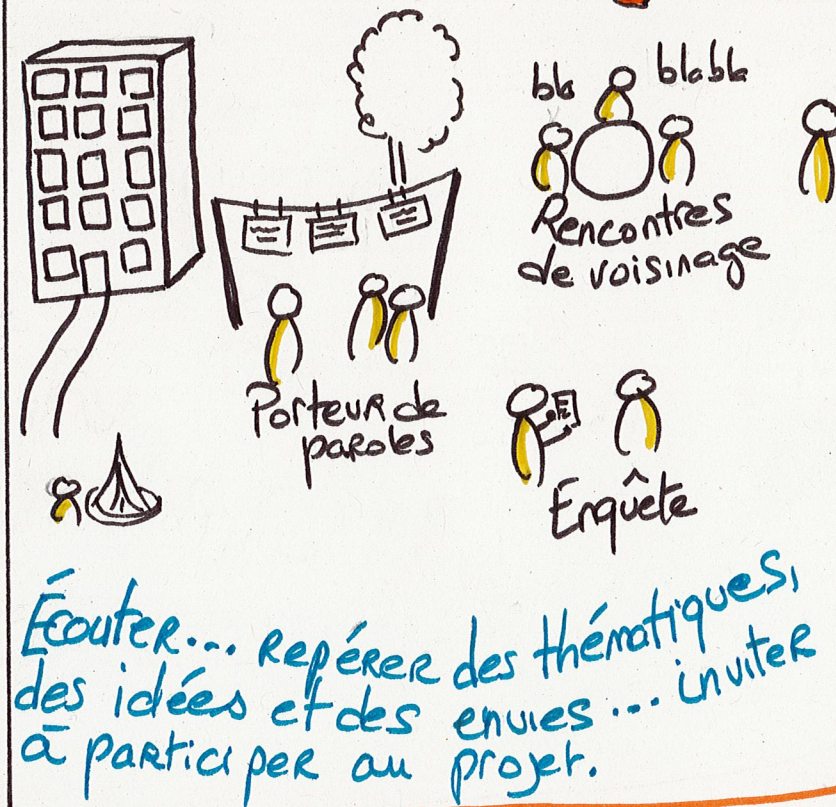 bla
blabla
Rencontres
de voisinage
Porteur de
paroles
Enquête
Écouter... Repérer des thématiques,
des idées et des envies... inviter
à participer au projet.